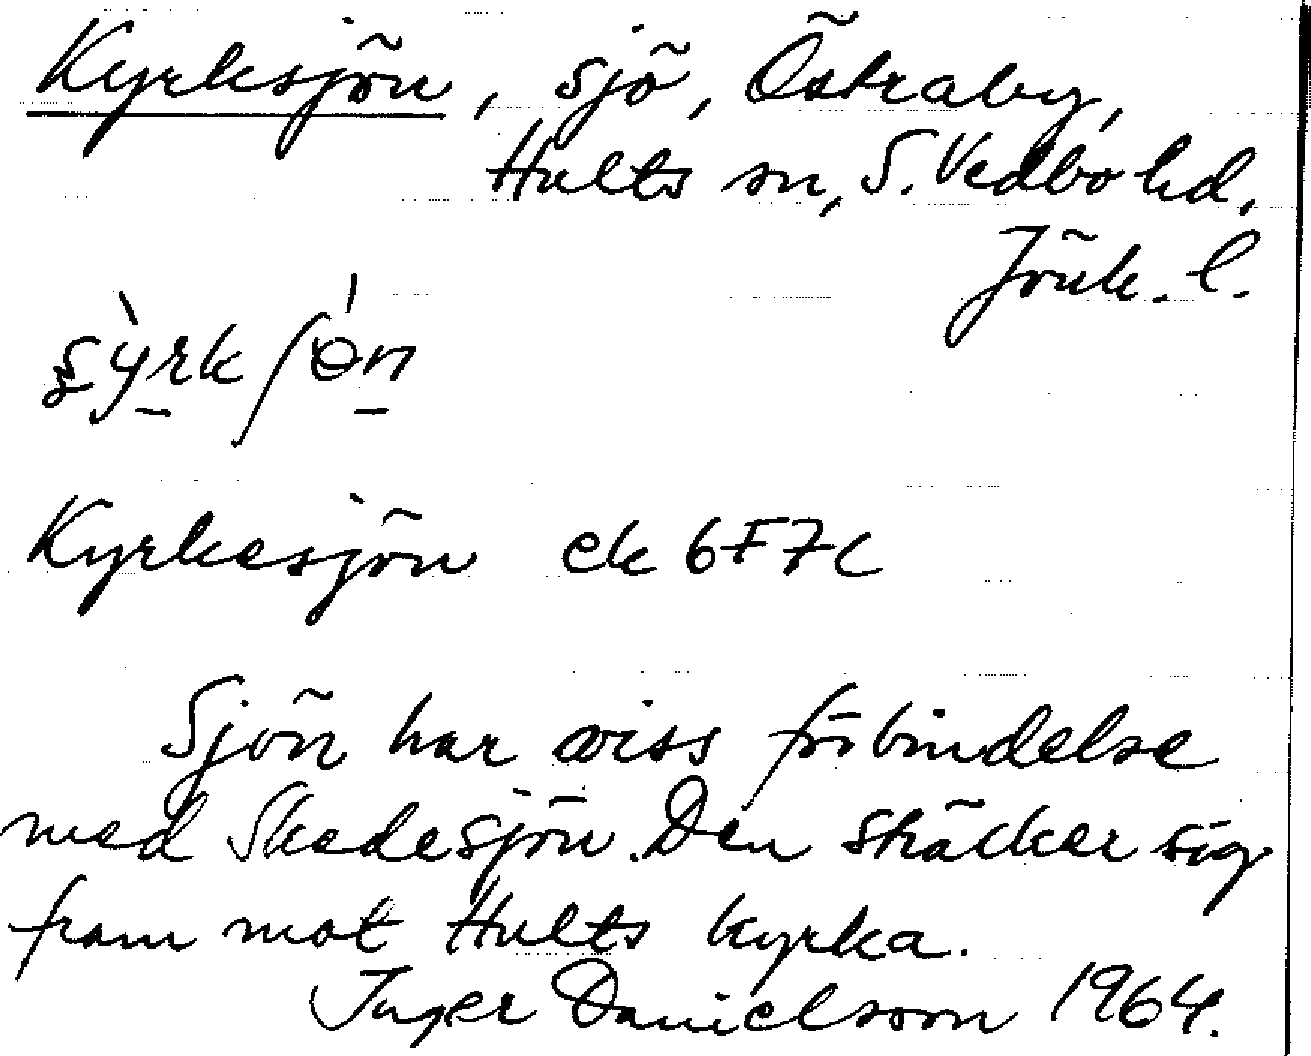 Kyrksjön, sjö, Östraby,
Hults sn, S. Vedbo hd,
Jönk. l.
Kyrkesjön ek 6F7c
Sjön har viss förbindelse
med Skedesjön. Den sträcker sig
fram mot Hults kyrka.
Inger Danielsson 1964.